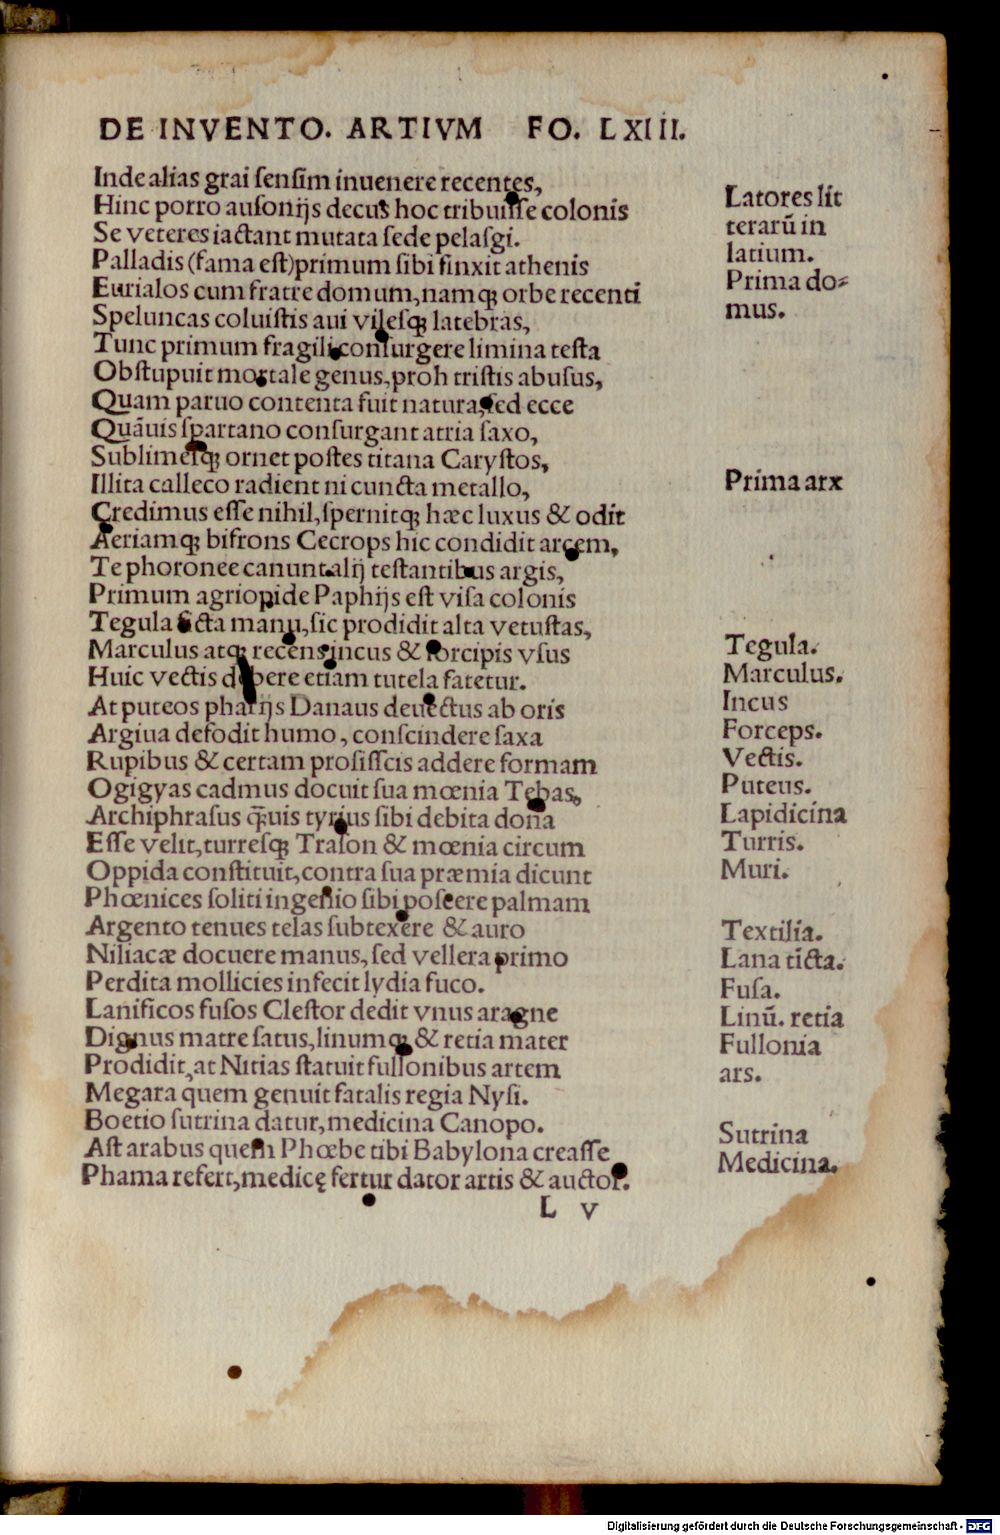 DE INVENTO. ARTIVM FO. LXIII.
Inde alias grai sensim inuenere recentes,
Hinc porro ausonijs decus hoc tribuisse colonis
Se veteres iactant mutata sede pelasgi.
Palladis (fama est) primum sibi finxit athenis
Eurialos cum fratre domum, namq; orbe recenti
Speluncas coluistis aui vilesq; latebras,
Tunc primum fragili consurgere limina testa
Obstupuit mortale genus, proh tristis abusus,
Quam paruo contenta fuit natura, sed ecce
Quãuis spartano consurgant atria saxo,
Sublimesq; ornet postes titana Carystos,
Illita calleco radient ni cuncta metallo,
Credimus esse nihil, spernitq; hæc luxus & odit
Aeriamq; bifrons Cecrops hic condidit arcem,
Te phoronee canunt alij testantibus argis,
Primum agriopide Paphijs est visa colonis
Tegula ficta manu, sic prodidit alta vetustas,
Marculus atq; recens incus & forcipis vsus
Huic vectis debere etiam tutela fatetur.
At puteos pharijs Danaus deuectus ab oris
Argiua defodit humo, conscindere saxa
Rupibus & certam prosisscis addere formam
Ogigyas cadmus docuit sua mœnia Tebas,
Archiphrasus q̃uis tyrius sibi debita dona
Esse velit, turresq; Trason & mœnia circum
Oppida constituit, contra sua præmia dicunt
Phœnices soliti ingenio sibi poscere palmam
Argento tenues telas subtexere & auro
Niliacæ docuere manus, sed vellera primo
Perdita mollicies infecit lydia fuco.
Lanificos fusos Clestor dedit vnus aragne
Dignus matre satus, linumq; & retia mater
Prodidit, at Nitias statuit fullonibus artem
Megara quem genuit fatalis regia Nysi.
Boetio sutrina datur, medicina Canopo.
Ast arabus quem Phœbe tibi Babylona creasse
Phama refert, medicę fertur dator artis & auctor.
L v
Latores lit
terarũ in
latium.
Prima do⸗
mus.
Prima arx
Tegula.
Marculus.
Incus
Forceps.
Vectis.
Puteus.
Lapidicina
Turris.
Muri.
Textilia.
Lana ticta.
Fusa.
Linũ. retia
Fullonia
ars.
Sutrina
Medicina.
Digitalisierung gefördert durch die Deutsche Forschungsgemeinschaft - DFG